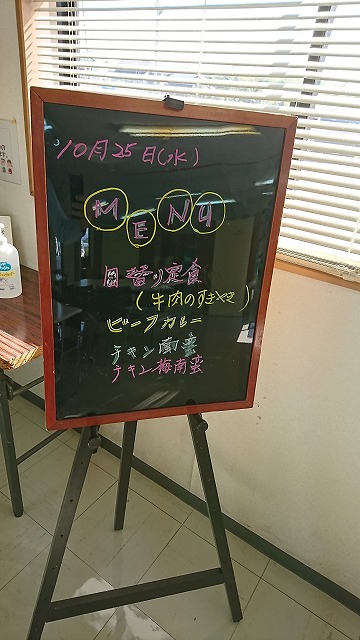 10月25日(水)
MENU
日替り定食
(牛肉のすきやき)
ビーフカレー
チキン南蛮
チキン梅南蛮